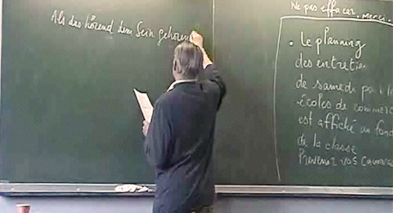 Als das hörend dem Sein gehören
Ne pas effacer. Merci.
. Le planning
des entretien
de samedi
écoles de commerce
est affiché au fond
de la classe
Prévenez vos camara